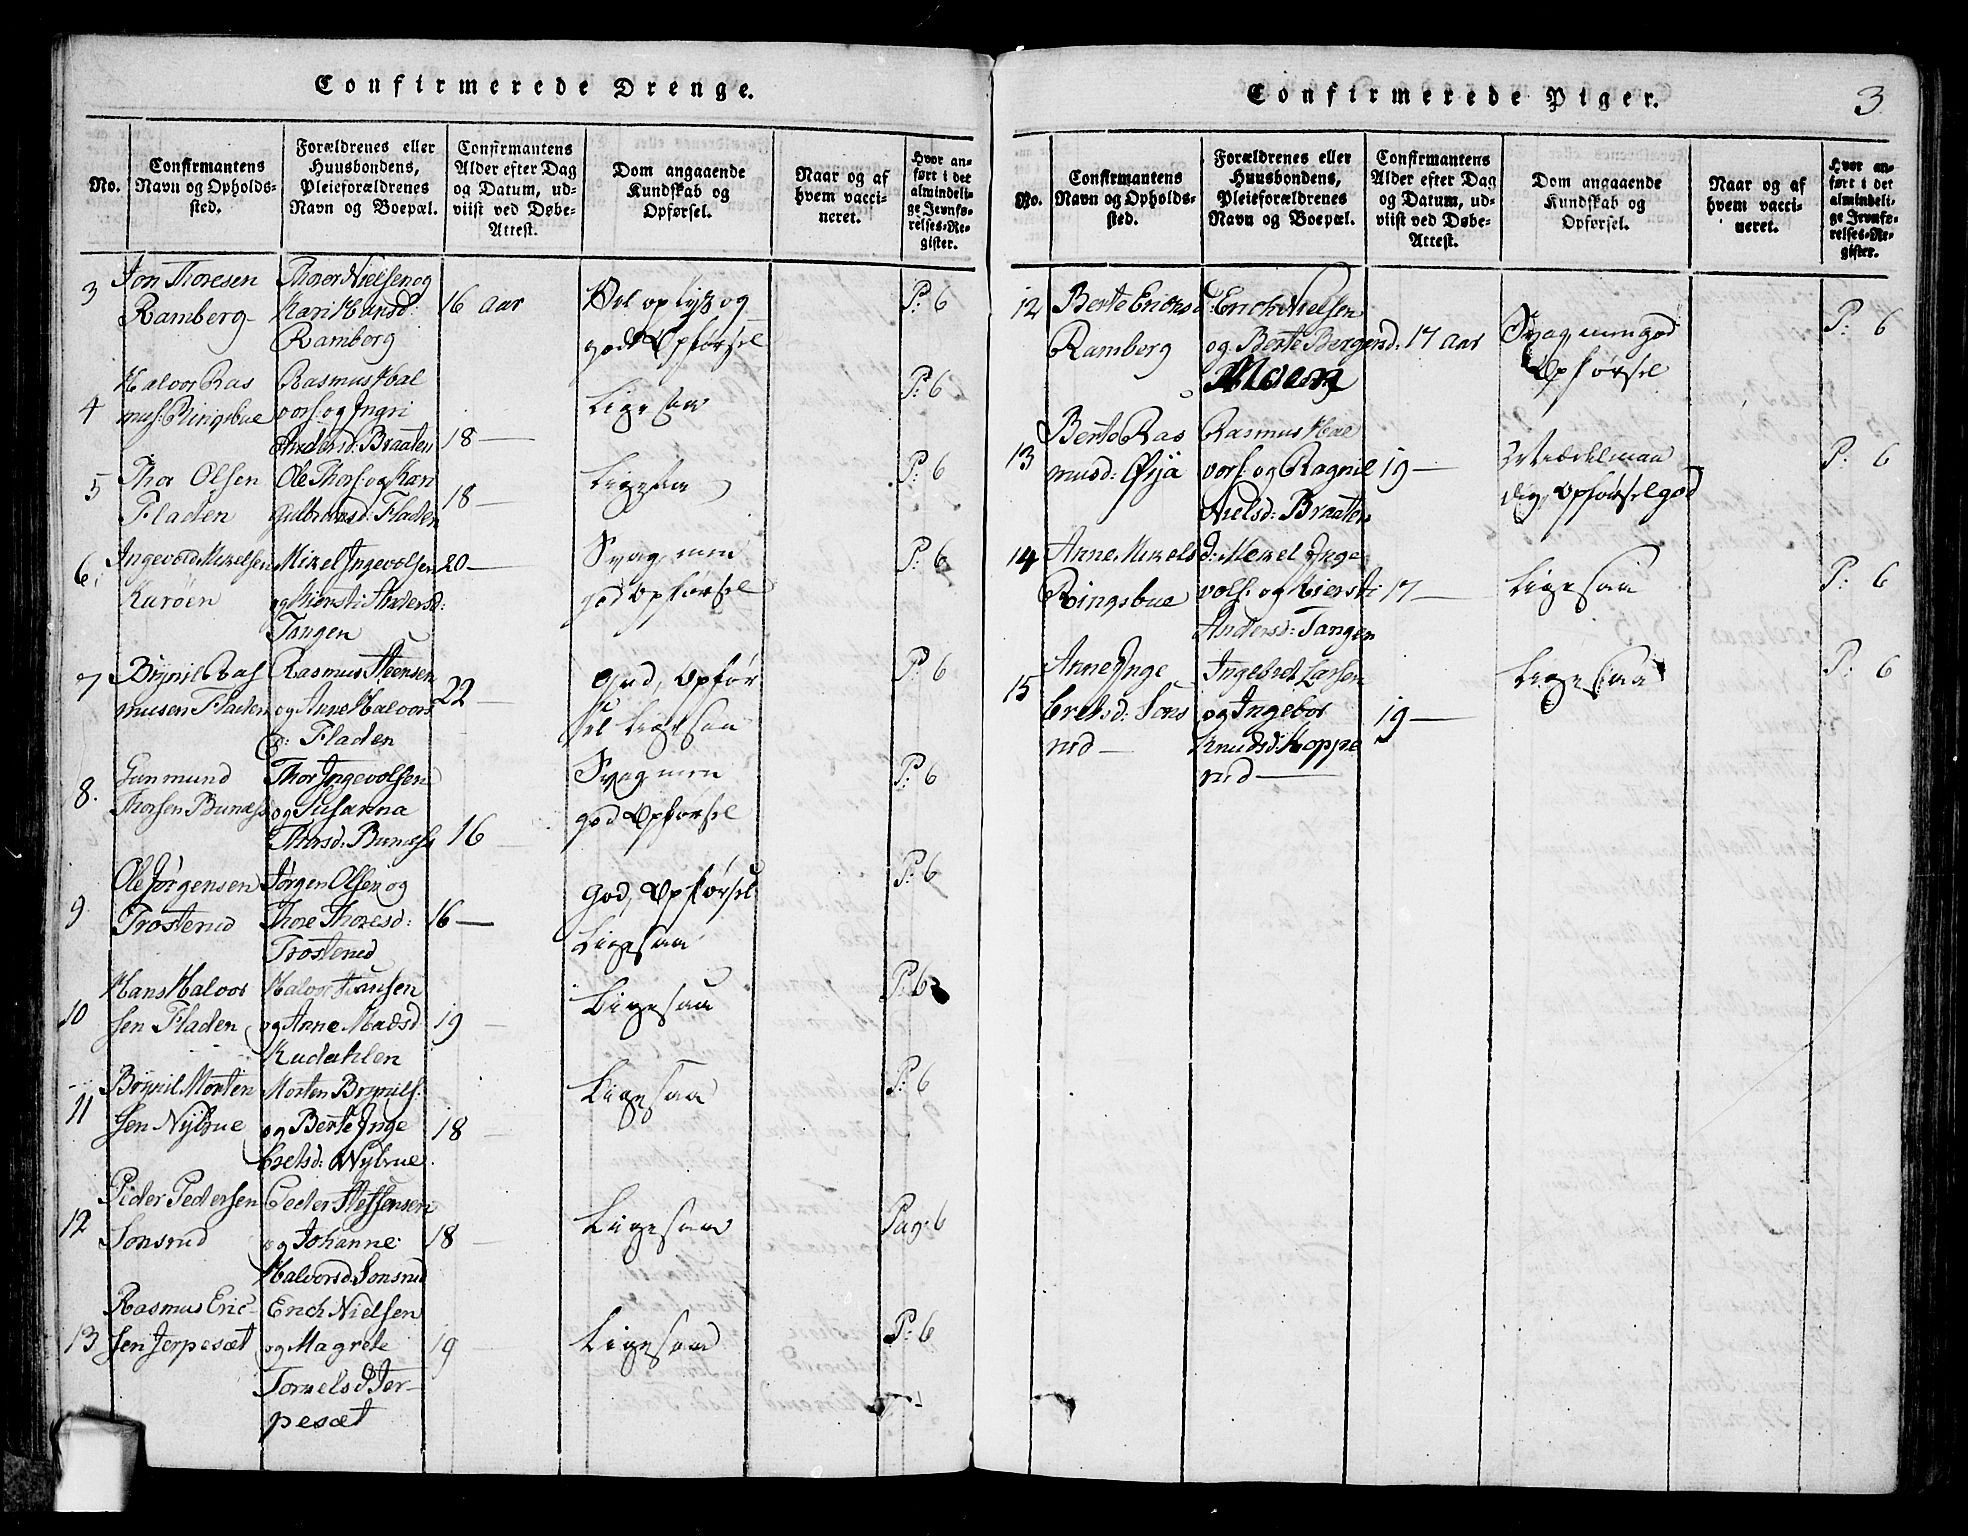 Confirmerede Drenge.
No.
Confirmantens
Navn og Opholds-
sted.
Forældrenes eller
Huusbondens,
Pleieforældrenes
Navn og Boepæl.
Confirmantens
Alder efter Dag
og Datum, ud-
viist ved Døbe-
Attest.
Dom angaaende
Kundskab og
Opførsel.
Naar og af
hvem vacci-
neret.
Hvor an-
ført i det
almindeli-
ge Jevnfø-
relses-Re-
gister.
3
Jon Thoresen
Ramberg
Thoror Nielsen og
Kari Hansd:
Ramberg
16 aar
Vel oplyst og
god Opførsel
P: 6
4
Halvor Ras
mus: Ringsbue
Rasmus Hal
vors: og Ingri
Andersd: Braaten
18
Ligesaa
P: 6
5
Thor Olsen
Fladen
Ole Thors: og Kari
Gulbransd: Fladen
18
Ligesaa
P: 6
6
Ingevold Mikelsen
Kurøen
Mikel Ingevolsen
og Kiersti Andersd:
Tangen
20
Svag, men
god Opførsel
P: 6
7
Brynil Ras
musen Fladen
Rasmus Steensen
og Anne Halvors
d: Fladen
22
God, Opfør
sel ligesaa
P: 6
8.
Gunmund
Thorsen Bunæss
Thor Ingevolsen
og Susanna
Thorsd: Bunæss
16
Svag men
god Opførsel
P: 6
9
Ole Jørgensen
Trosterud
Jørgen Olsen og
Thore Thoresd:
Trosterud
16
God, Opførsel
Ligesaa
P: 6
10
Hans Halvor
sen Fladen
Halvor Hansen
og Anne Madsd
Kudahlen
19
Ligesaa
P: 6
11
Brynil Morten
sen Nybrue
Morten Brynils:
og Berte Inge
bretsd: Nybrue
18
Ligesaa
P: 6
12
Peder Pedersen
Sonsrud
Peder Steffensen
og Johanne
Halvorsd: Sonsrud
18
Ligesaa
Pag: 6
13
Rasmus Eric-
sen Jerpesæt
Erich Nielsen
og Magrete
Tormelsd Jer-
pesæt
19
Ligesaa
P: 6
Confirmerede Piger.
3
No.
Confirmantens
Navn og Opholds-
sted.
Forældrenes eller
Huusbondens,
Pleieforældrenes
Navn og Boepæl.
Confirmantens
Alder efter Dag
og Datum, ud-
viist ved Døbe-
Attest.
Dom angaaende
Kundskab og
Opførsel.
Naar og af
hvem vacci-
neret.
Hvor an-
ført i det
almindeli-
ge Jevnfø-
relses-Re-
gister.
12
Berte Ericksd:
Ramberg
Erich Nielsen
og Berte Bergersd:
Moen
17 aar
Svag, men god
Opførsel
P: 6
13
Berte Ras
musd: Øyja
Rasmus Hal
vors: og Ragnil
Nielsd: Braaten
19
dig, Opførsel god
P: 6
14
Anne Mikelsd:
Ringsbue
Mekel Inge
vols: og Kiersti
Andersd: Tangen
17
Ligesaa
P: 6
15
Anne Inge
bretsd: Sons
rud
Ingebret Larsen
og Ingebor
Knudsd: Koppe
rud
19
Ligesaa
P: 6